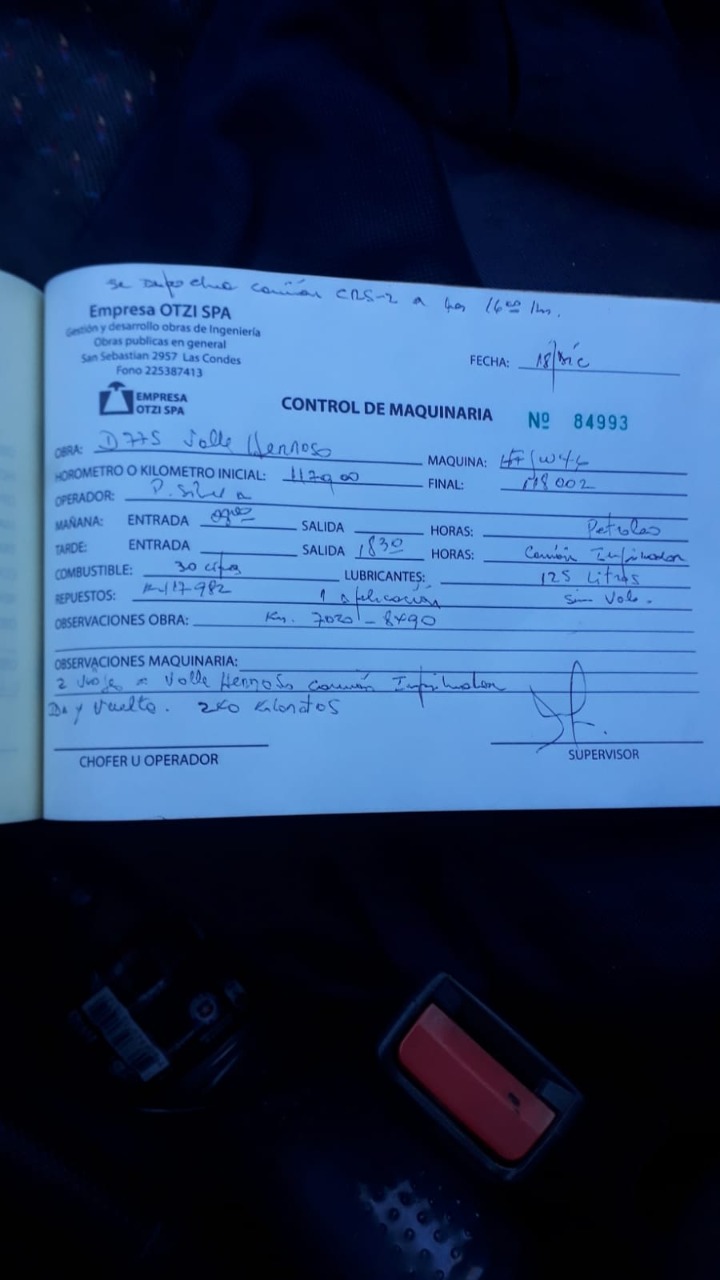 Se camión CRS-2 a las 16:00 hrs.
Empresa OTZI SPA
Gestión y desarrollo obras de Ingeniería
Obras publicas en general
San Sebastian 2957 Las Condes
Fono 225387413
FECHA: 18/Dic
EMPRESA
OTZI SPA
CONTROL DE MAQUINARIA
Nº 84993
OBRA: D775 Valle Hermoso
MAQUINA:
HOROMETRO O KILOMETRO INICIAL: 117900
FINAL: 118002
OPERADOR: P. Silva
MAÑANA: ENTRADA SALIDA HORAS: Petroleo
TARDE: ENTRADA SALIDA 1830 HORAS: Camión
COMBUSTIBLE: 30 LUBRICANTES: 125 Litros
REPUESTOS: 117982 1 aplicación Sin Vale.
OBSERVACIONES OBRA: Km. 7020 - 8490
OBSERVACIONES MAQUINARIA:
2 Valle Hermoso camión
y Vuelta. 240
CHOFER U OPERADOR
SUPERVISOR